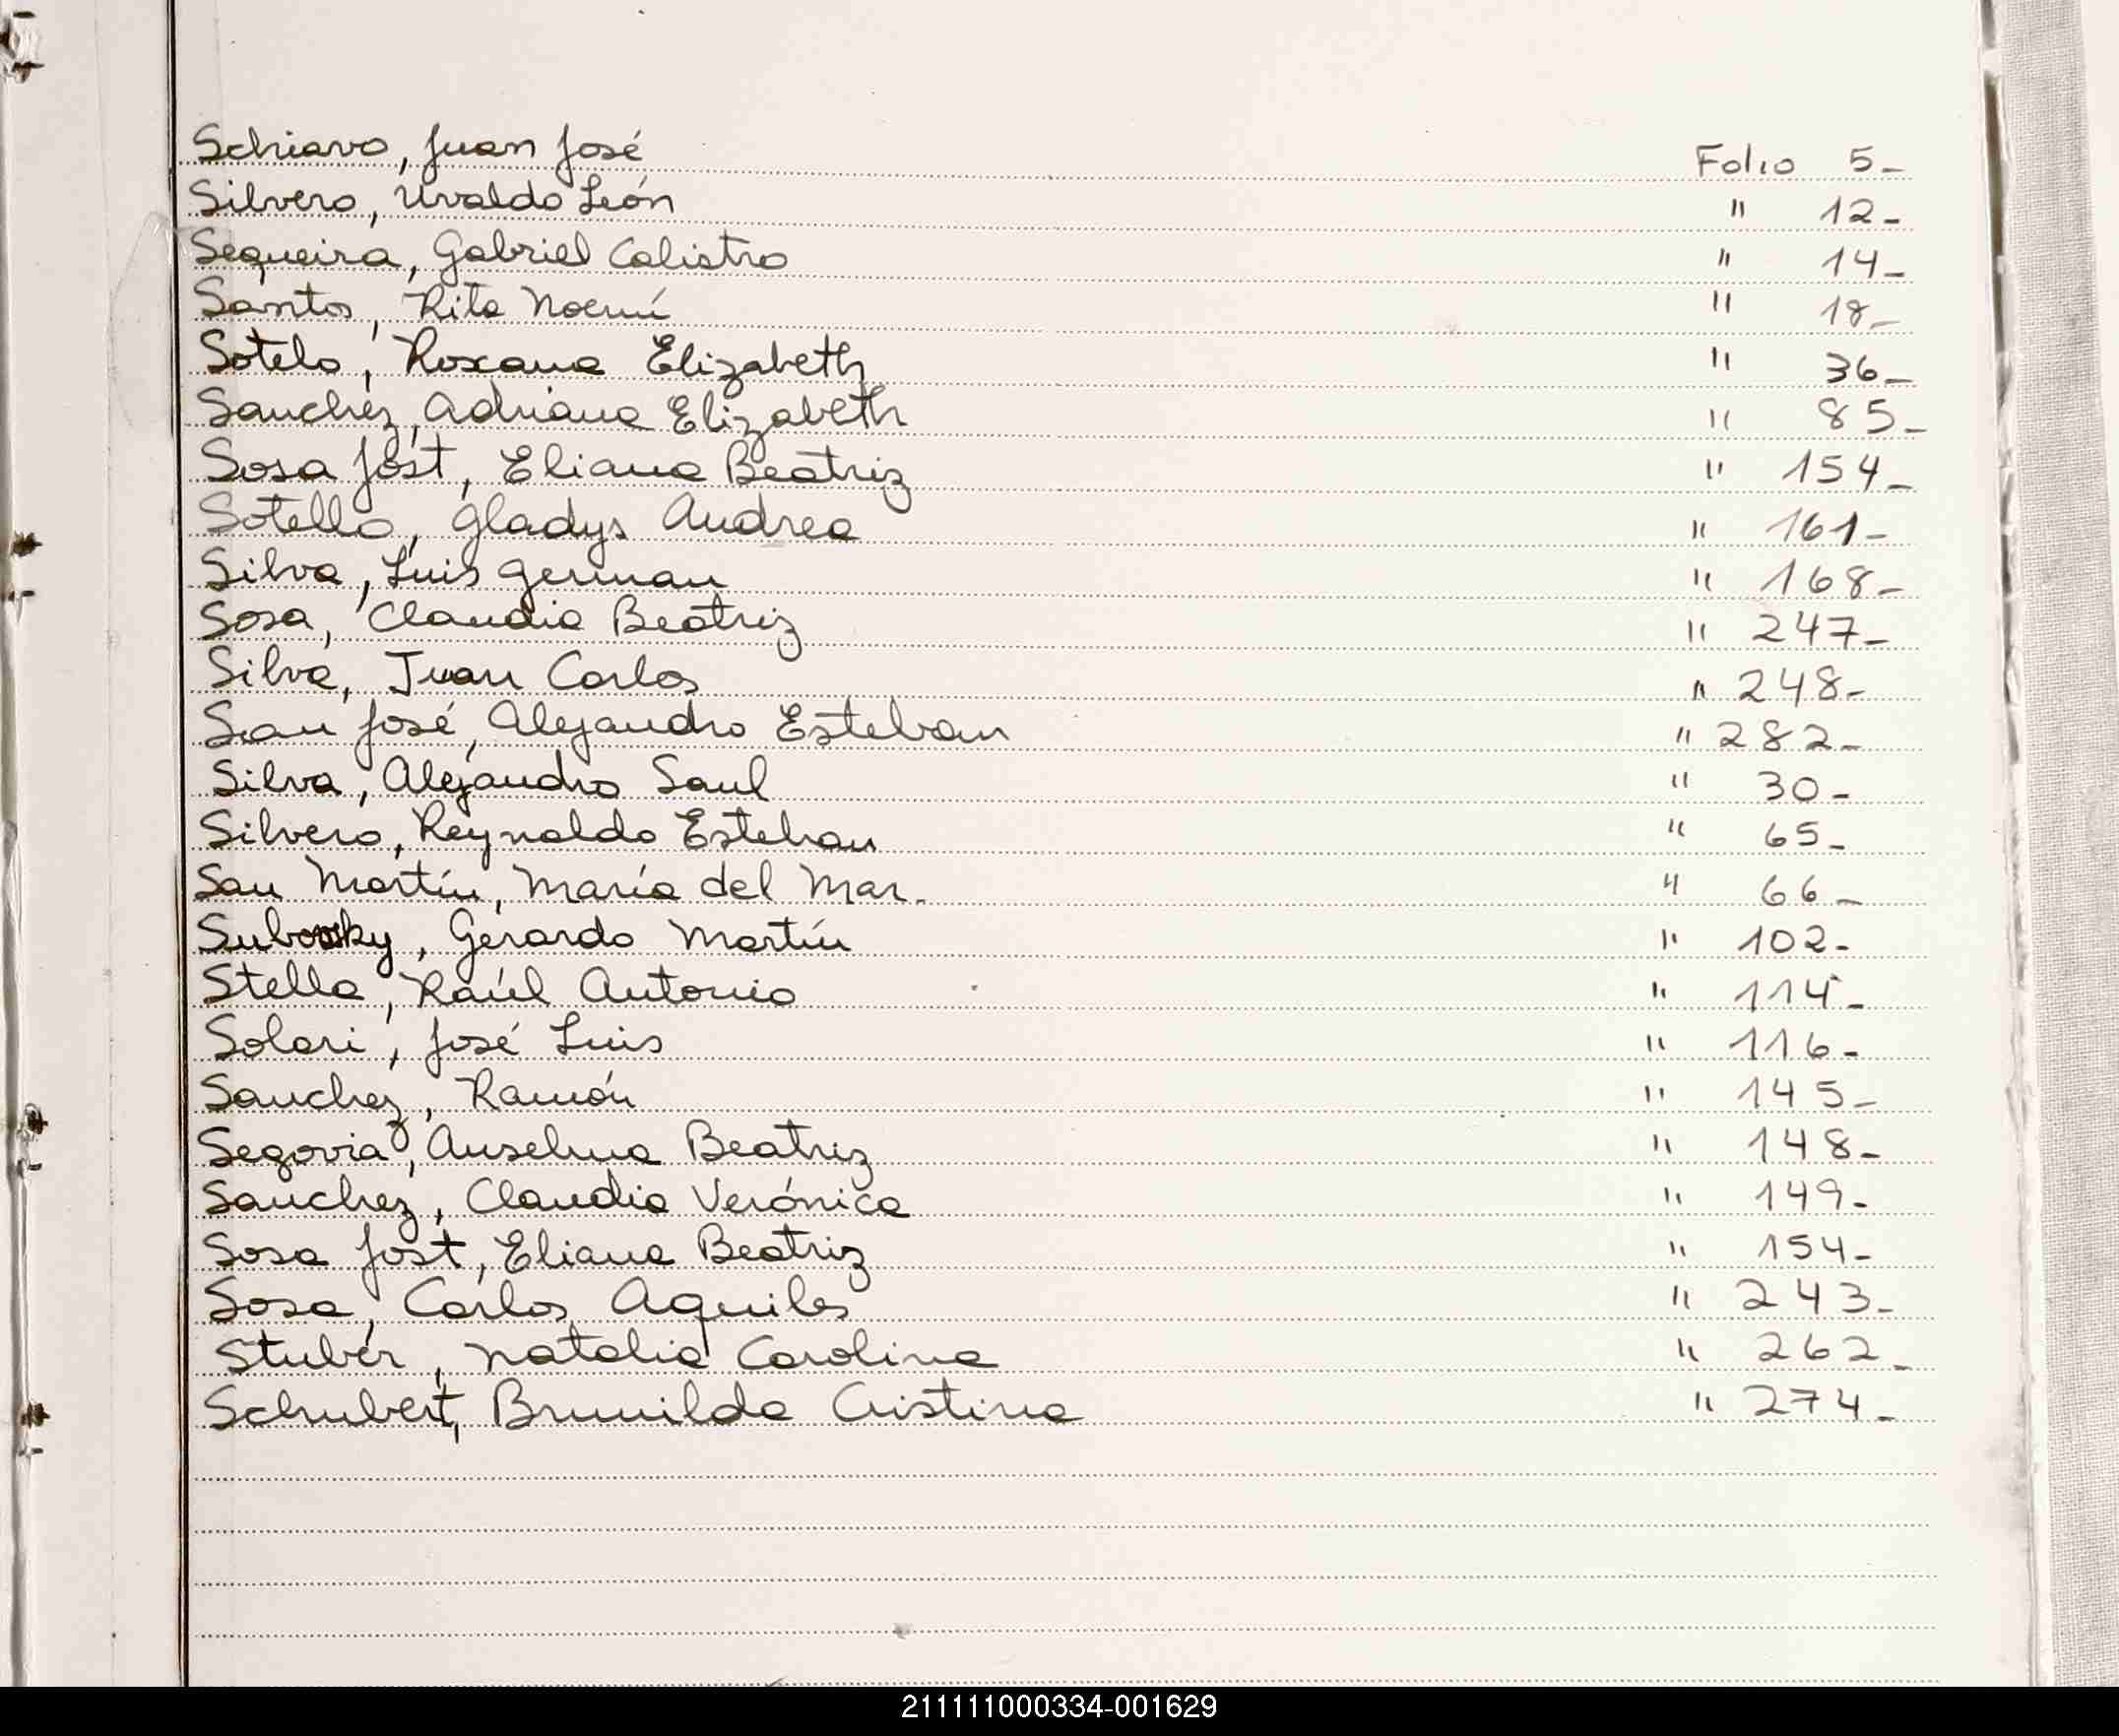 Schiavo, Juan José Folio 5-
Silvero, Uvaldo León " 12-
Sequeira, Gabriel Calistro " 14-
Santos, Rita Noemí " 18-
Sotelo, Roxana Elizabeth " 36-
Sanchez, Adriana Elizabeth " 85-
Sosa Jost, Eliana Beatriz " 154-
Sotello, Gladys Andrea " 161-
Silva, Luis German " 168-
Sosa, Claudia Beatriz " 247-
Silva, Juan Carlos " 248-
San José, Alejandro Esteban " 282-
Silva, Alejandro Saul " 30-
Silvero, Reynaldo Esteban " 65-
San Martín, María del Mar. " 66-
Gerardo Martín " 102-
Stella, Raúl Antonio " 114-
Solari, José Luis " 116-
Sanchez, Ramón " 145-
Segovia, Anselma Beatriz " 148-
Sanchez, Claudia Verónica " 149-
Sosa Jost, Eliana Beatriz " 154-
Sosa, Carlos Aquiles " 243-
Stuber, Natalia Carolina " 262-
Schubert, Brunilda Cristina " 274-
211111000334-001629